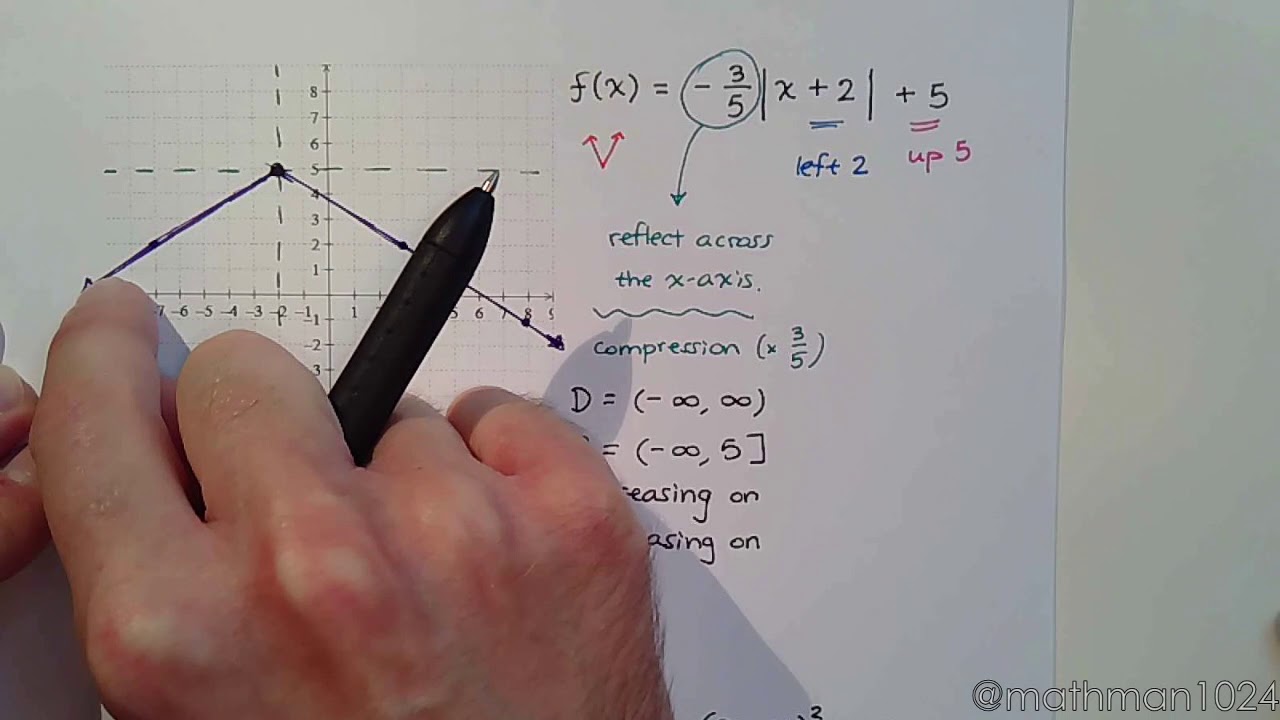 f(x) = - 3/5 |x + 2| + 5
left 2
up 5
reflect across
the x-axis.
compression (× 3/5)
D = (-∞, ∞)
= (-∞, 5]
easing on
asing on
8
7
6
5
4
3
2
1
-7 -6 -5 -4 -3 -2 -1 1 5 6 7 8 9
-1
-2
3
2
@mathman1024